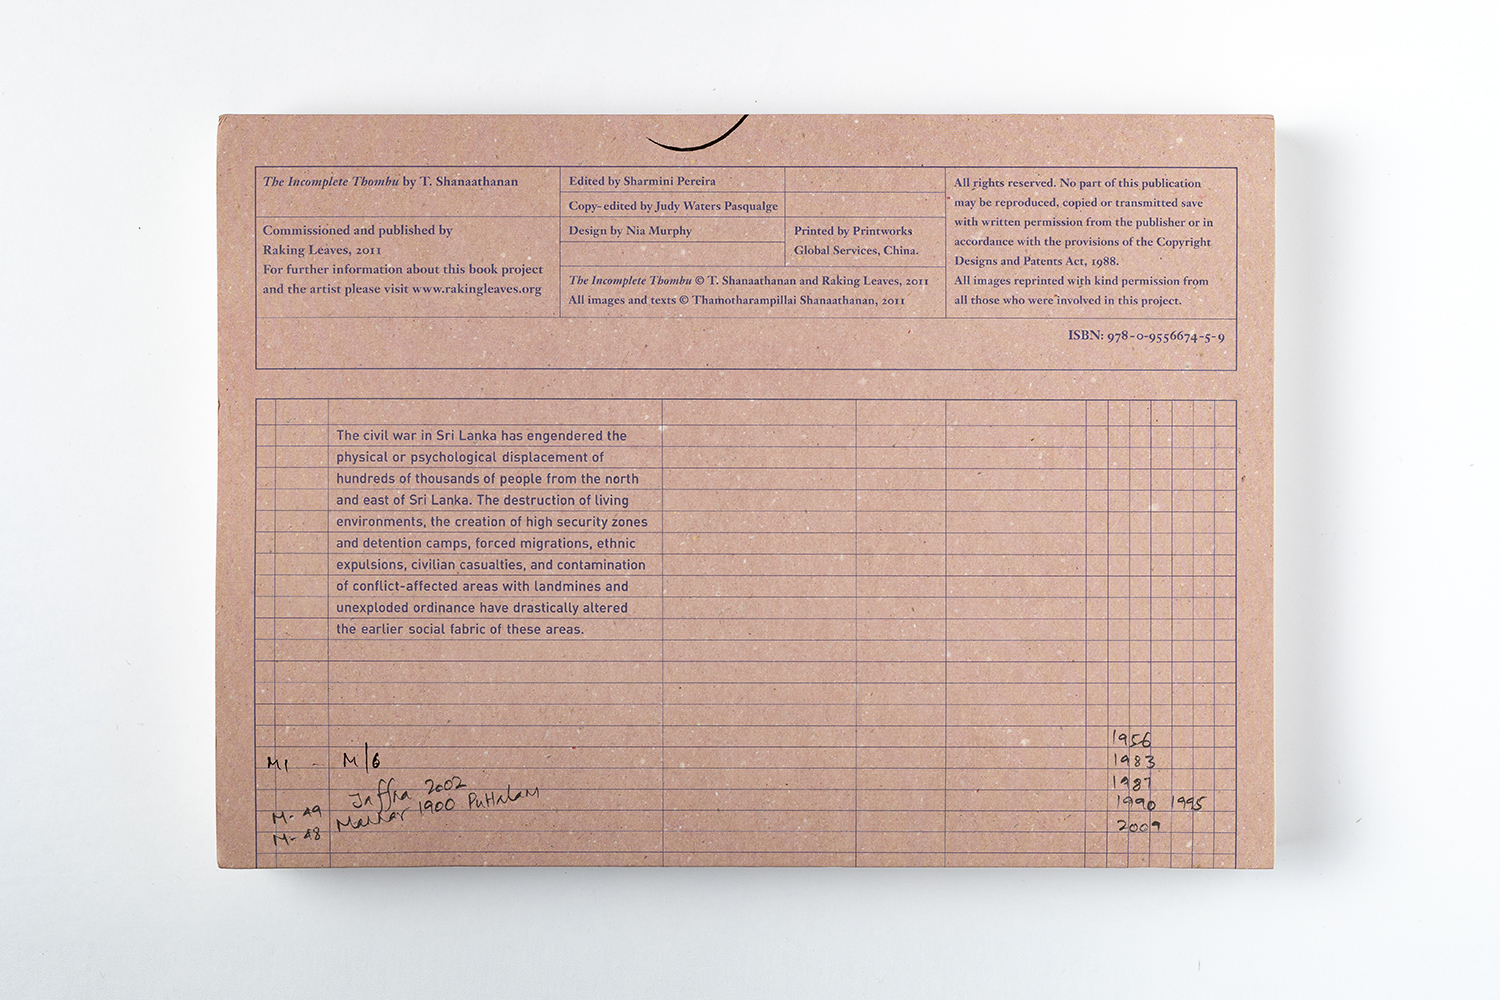 The Incomplete Thombu by T. Shanaathanan
Commissioned and published by
Raking Leaves, 2011
For further information about this book project
and the artist please visit www.rakingleaves.org
Edited by Sharmini Pereira
Copy-edited by Judy Waters Pasqualge
Design by Nia Murphy
Printed by Printworks
Global Services, China.
The Incomplete Thombu © T. Shanaathanan and Raking Leaves, 2011
All images and texts © Thamotharampillai Shanaathanan, 2011
All rights reserved. No part of this publication
may be reproduced, copied or transmitted save
with written permission from the publisher or in
accordance with the provisions of the Copyright
Designs and Patents Act, 1988.
All images reprinted with kind permission from
all those who were involved in this project.
ISBN: 978-0-9556674-5-9
The civil war in Sri Lanka has engendered the
physical or psychological displacement of
hundreds of thousands of people from the north
and east of Sri Lanka. The destruction of living
environments, the creation of high security zones
and detention camps, forced migrations, ethnic
expulsions, civilian casualties, and contamination
of conflict-affected areas with landmines and
unexploded ordinance have drastically altered
the earlier social fabric of these areas.
M1 - M/6
Jaffna 2002
M- 49 Mannar 1900 Puttalam
M- 48
1956
1983
1987
1990 1995
2009